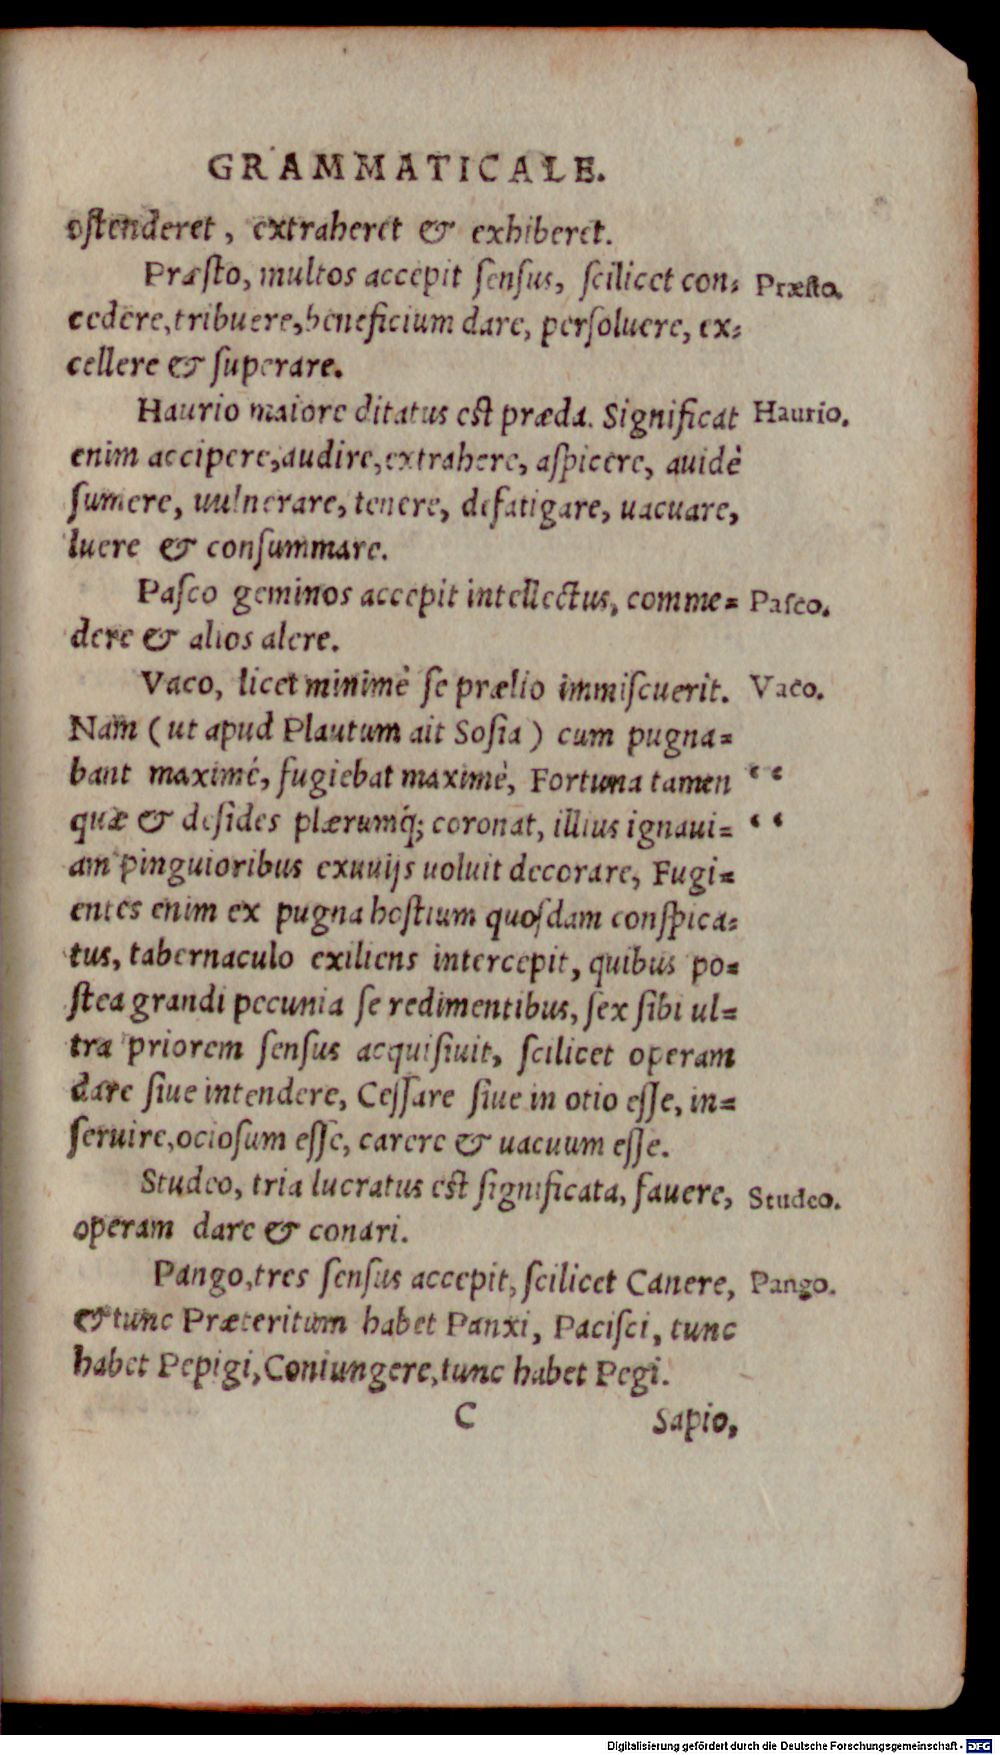 GRAMMATICALE.
oſtenderet, extraheret & exhiberet.
Præſto, multos accepit ſenſus, ſcilicet con= Præſto.
cedere, tribuere, beneficium dare, perſoluere, ex=
cellere & ſuperare.
Haurio maiore ditatus eſt præda. Significat Haurio.
enim accipere, audire, extrahere, aſpicere, auidè
ſumere, uulnerare, tenere, defatigare, uacuare,
luere & conſummare.
Paſco geminos accepit intellectus, comme= Paſco.
dere & alios alere.
Vaco, licet minimè ſe prælio immiſcuerit. Vaco.
Nam (ut apud Plautum ait Soſia) cum pugna=
bant maximé, fugiebat maximè, Fortuna tamen "
quæ & deſides plærumq́; coronat, illius ignaui= "
am pinguioribus exuuijs uoluit decorare, Fugi=
entes enim ex pugna hoſtium quoſdam conſpica=
tus, tabernaculo exiliens intercepit, quibus po=
ſtea grandi pecunia ſe redimentibus, ſex ſibi ul=
tra priorem ſenſus acquiſiuit, ſcilicet operam
dare ſiue intendere, Ceſſare ſiue in otio eſſe, in=
ſeruire, ocioſum eſſe, carere & uacuum eſſe.
Studeo, tria lucratus eſt ſignificata, fauere, Studeo.
operam dare & conari.
Pango, tres ſenſus accepit, ſcilicet Canere, Pango.
& tunc Præteritum habet Panxi, Paciſci, tunc
habet Pepigi, Coniungere, tunc habet Pegi.
C Sapio,
Digitalisierung gefördert durch die Deutsche Forschungsgemeinschaft - DFG